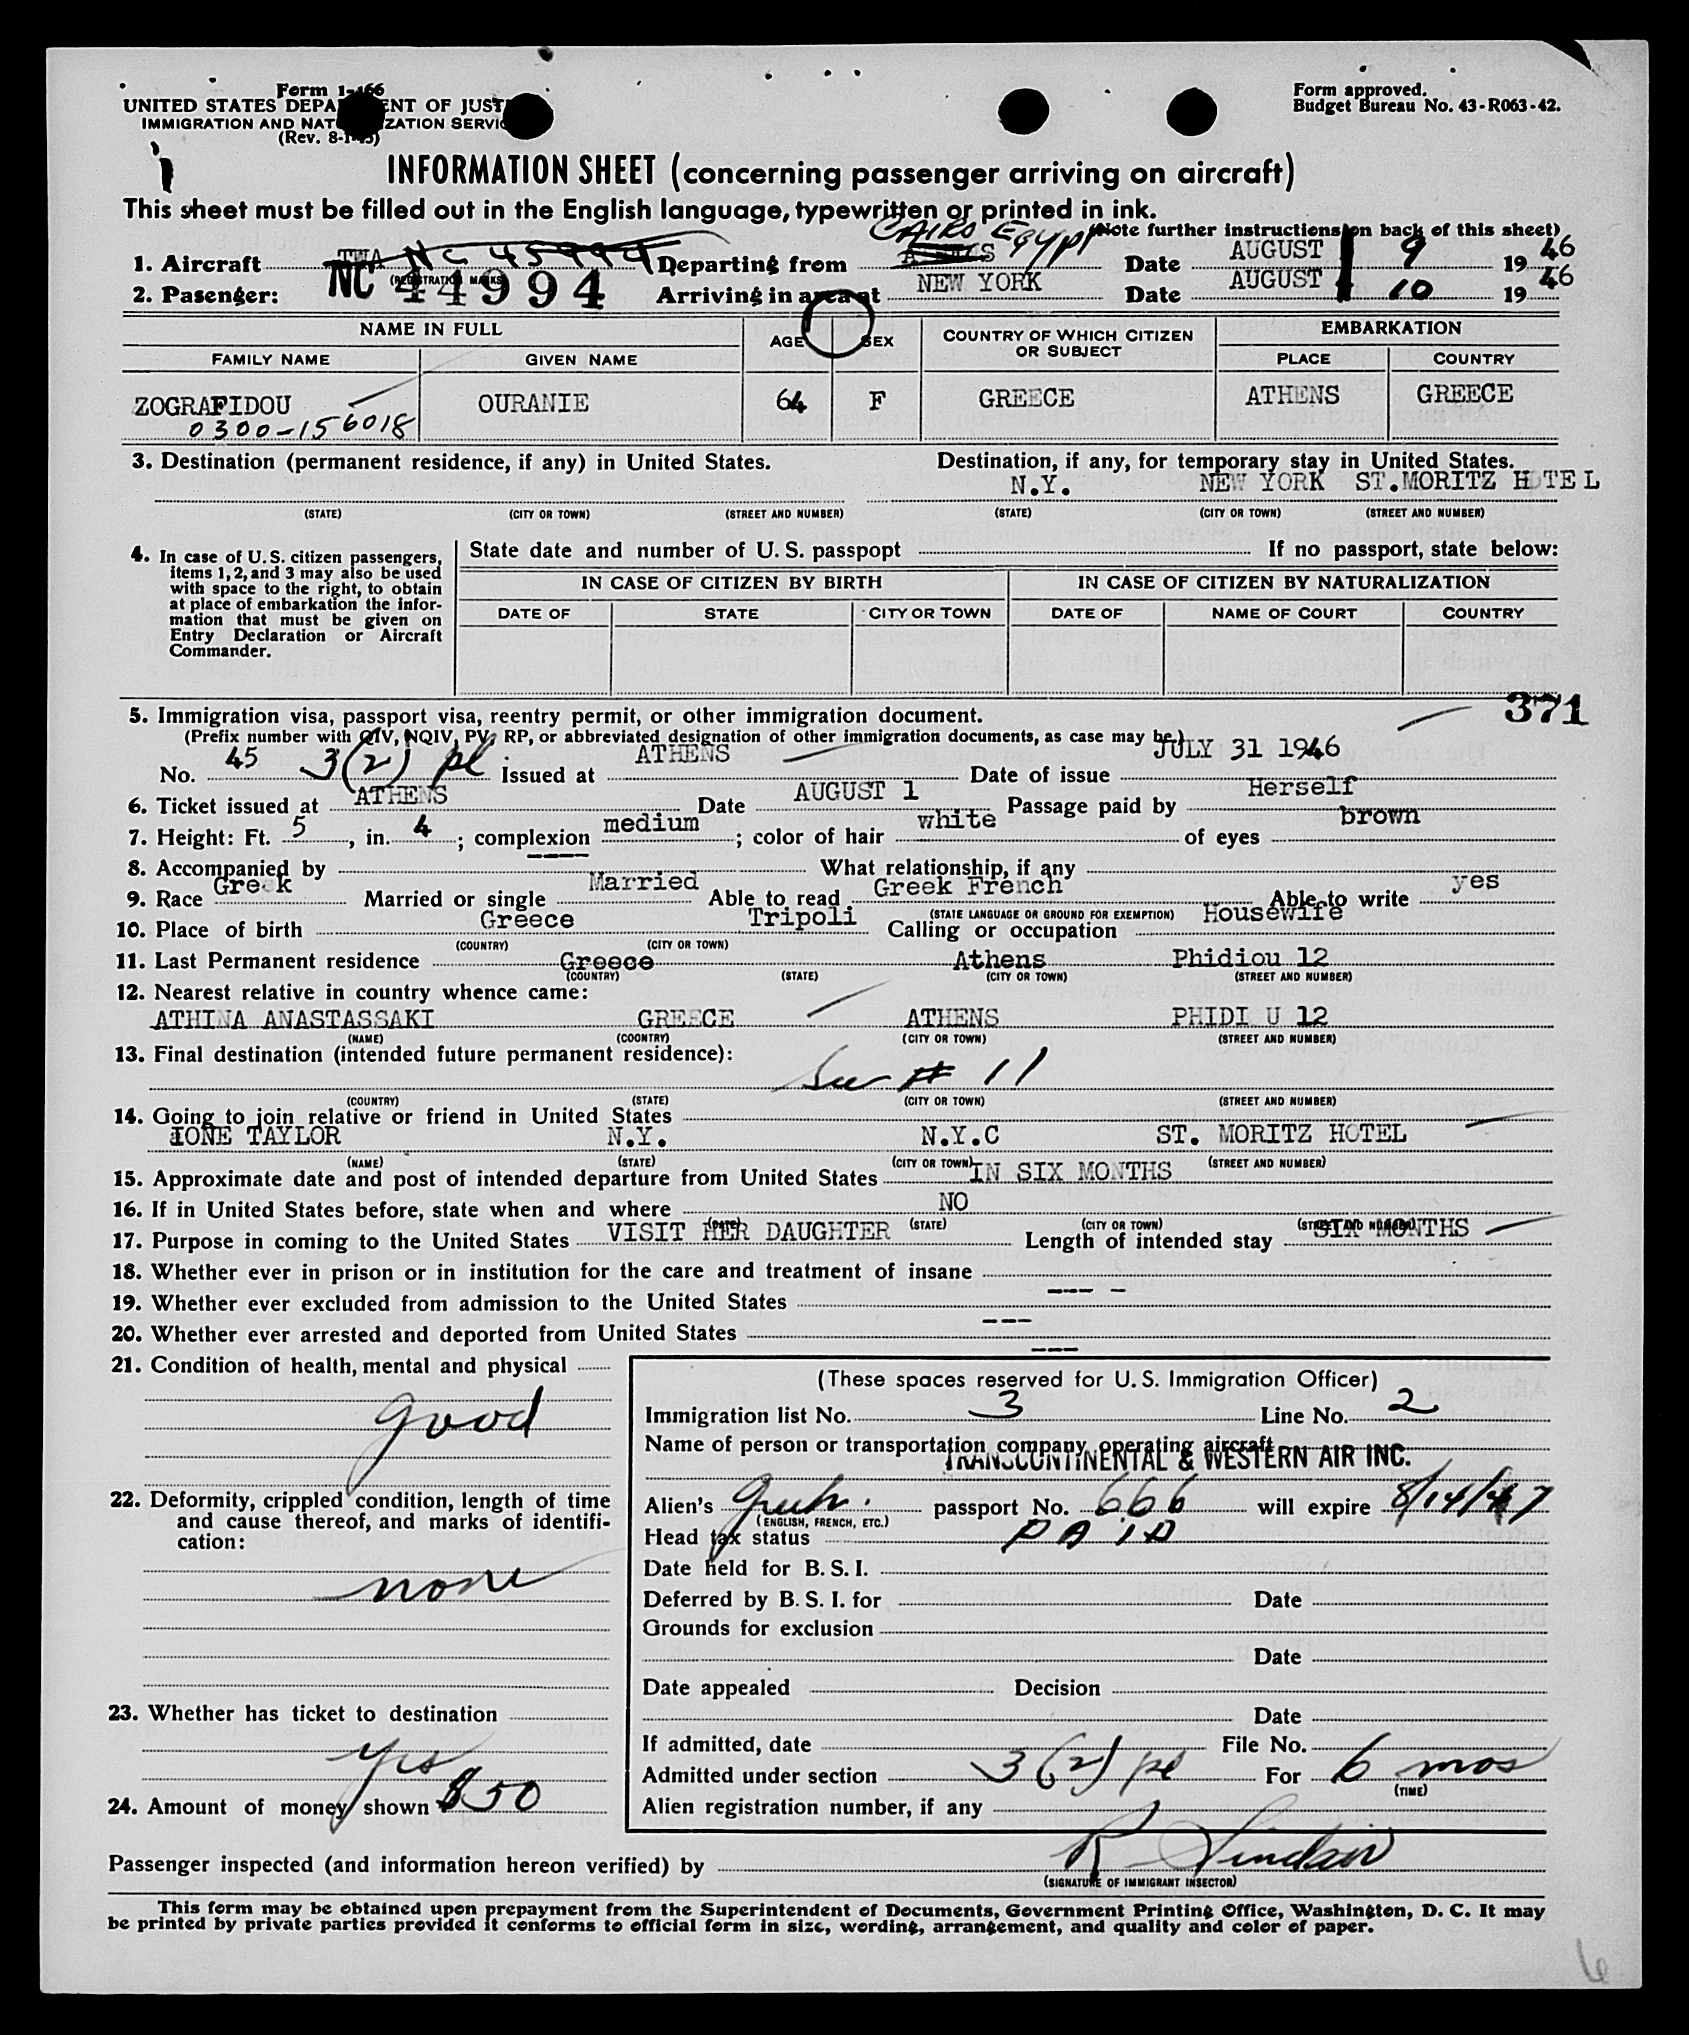 Form 1-466
UNITED STATES DEPARTMENT OF JUSTICE
IMMIGRATION AND NATURALIZATION SERVICE
(Rev. 8-1-45)
Form approved.
Budget Bureau No. 43-R063-42.
INFORMATION SHEET (concerning passenger arriving on aircraft)
This sheet must be filled out in the English language, typewritten or printed in ink.
(Note further instructions on back of this sheet)
1. Aircraft TWA NC 45994 Departing from CAIRO Egypt Date AUGUST 9 1946
(REGISTRATION MARKS)
2. Pasenger: NC 44994 Arriving in area at NEW YORK Date AUGUST 10 1946
NAME IN FULL AGE SEX COUNTRY OF WHICH CITIZEN OR SUBJECT EMBARKATION
FAMILY NAME GIVEN NAME PLACE COUNTRY
ZOGRAFIDOU OURANIE 64 F GREECE ATHENS GREECE
0300-156018
3. Destination (permanent residence, if any) in United States. Destination, if any, for temporary stay in United States.
N.Y. NEW YORK ST.MORITZ HOTEL
(STATE) (CITY OR TOWN) (STREET AND NUMBER) (STATE) (CITY OR TOWN) (STREET AND NUMBER)
4. In case of U.S. citizen passengers, items 1, 2, and 3 may also be used with space to the right, to obtain at place of embarkation the information that must be given on Entry Declaration or Aircraft Commander.
State date and number of U.S. passpopt If no passport, state below:
IN CASE OF CITIZEN BY BIRTH IN CASE OF CITIZEN BY NATURALIZATION
DATE OF STATE CITY OR TOWN DATE OF NAME OF COURT COUNTRY
371
5. Immigration visa, passport visa, reentry permit, or other immigration document.
(Prefix number with QIV, NQIV, PV, RP, or abbreviated designation of other immigration documents, as case may be.)
No. 45 3(2) pl. Issued at ATHENS Date of issue JULY 31 1946
6. Ticket issued at ATHENS Date AUGUST 1 Passage paid by Herself
7. Height: Ft. 5, in. 4; complexion medium; color of hair white of eyes brown
8. Accompanied by ---- What relationship, if any
9. Race Greek Married or single Married Able to read Greek French Able to write yes
(STATE LANGUAGE OR GROUND FOR EXEMPTION)
10. Place of birth Greece Tripoli Calling or occupation Housewife
(COUNTRY) (CITY OR TOWN)
11. Last Permanent residence Greece Athens Phidiou 12
(COUNTRY) (STATE) (CITY OR TOWN) (STREET AND NUMBER)
12. Nearest relative in country whence came:
ATHINA ANASTASSAKI GREECE ATHENS PHIDI U 12
(NAME) (COONTRY) (CITY OR TOWN) (STREET AND NUMBER)
13. Final destination (intended future permanent residence):
See # 11
(COUNTRY) (STATE) (CITY OR TOWN) (STREET AND NUMBER)
14. Going to join relative or friend in United States
IONE TAYLOR N.Y. N.Y.C ST. MORITZ HOTEL
(NAME) (STATE) (CITY OR TOWN) (STREET AND NUMBER)
15. Approximate date and post of intended departure from United States IN SIX MONTHS
16. If in United States before, state when and where NO
(DATE) (STATE) (CITY OR TOWN) (STREET AND NUMBER)
17. Purpose in coming to the United States VISIT HER DAUGHTER Length of intended stay SIX MONTHS
18. Whether ever in prison or in institution for the care and treatment of insane --- -
19. Whether ever excluded from admission to the United States ---
20. Whether ever arrested and deported from United States ---
21. Condition of health, mental and physical
good
22. Deformity, crippled condition, length of time and cause thereof, and marks of identification:
none
23. Whether has ticket to destination
yes
24. Amount of money shown $50
(These spaces reserved for U.S. Immigration Officer)
Immigration list No. 3 Line No. 2
Name of person or transportation company operating aircraft
TRANSCONTINENTAL & WESTERN AIR INC.
Alien's Greek. passport No. 666 will expire 8/14/47
(ENGLISH, FRENCH, ETC.)
Head tax status PAID
Date held for B. S. I.
Deferred by B. S. I. for Date
Grounds for exclusion
Date
Date appealed Decision
Date
If admitted, date File No.
Admitted under section 3(2) pl For 6 mos
(TIME)
Alien registration number, if any
Passenger inspected (and information hereon verified) by R Sinclair
(SIGNATURE OF IMMIGRANT INSECTOR)
This form may be obtained upon prepayment from the Superintendent of Documents, Government Printing Office, Washington, D. C. It may
be printed by private parties provided it conforms to official form in size, wording, arrangement, and quality and color of paper.
6